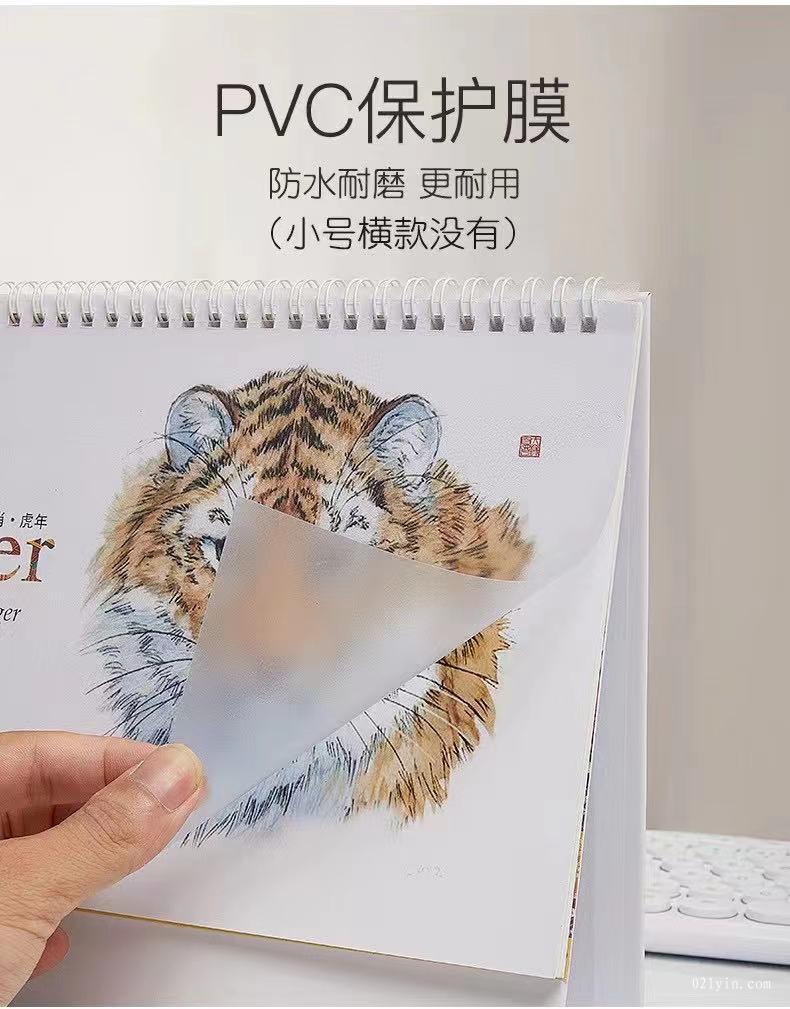 PVC保护膜
防水耐磨 更耐用
（小号横款没有）
肖·虎年
er
ger
021yin.com